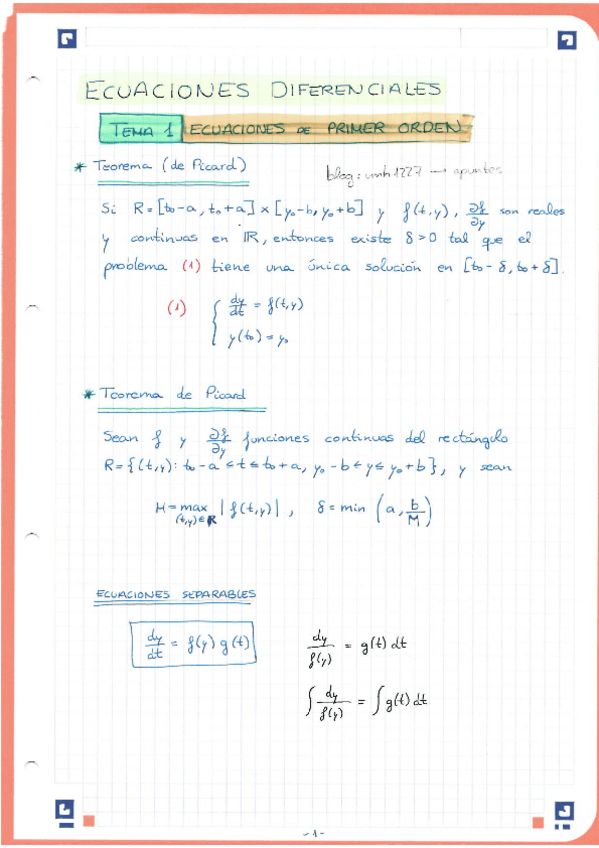 ECUACIONES DIFERENCIALES
TEMA 1 ECUACIONES DE PRIMER ORDEN
* Teorema (de Picard)
blog: umh1227 → apuntes
Si R = [t₀-a, t₀+a] × [y₀-b, y₀+b] y f(t,y), ∂f/∂y son reales
y continuas en ℝ, entonces existe δ>0 tal que el
problema (1) tiene una única solución en [t₀-δ, t₀+δ].
(1) { dy/dt = f(t,y)
y(t₀) = y₀
* Teorema de Picard
Sean f y ∂f/∂y funciones continuas del rectángulo
R = {(t,y): t₀-a ≤ t ≤ t₀+a, y₀-b ≤ y ≤ y₀+b}, y sean
M = max |f(t,y)|, δ = min (a, b/M)
(t,y)∈R
ECUACIONES SEPARABLES
dy/dt = f(y) g(t)
dy/f(y) = g(t) dt
∫ dy/f(y) = ∫ g(t) dt
-1-